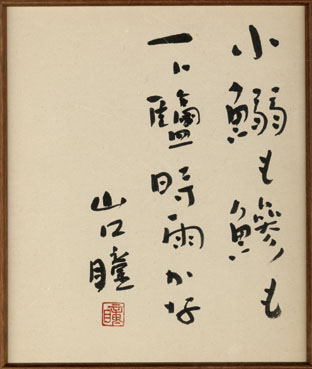 小鰯も鯵も
一ト鹽時雨かな
山口瞳